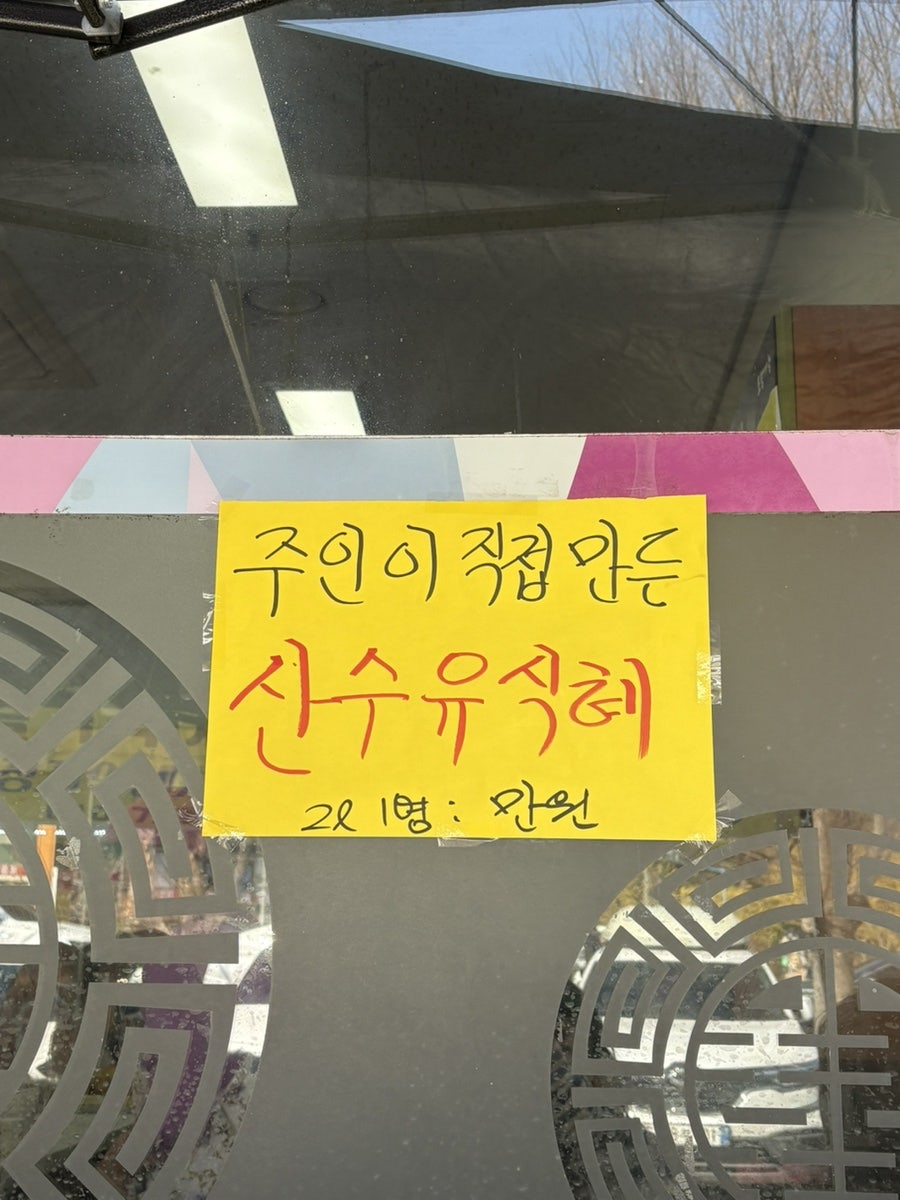 주인이 직접 만든
산수유식혜
2l 1병 : 만원